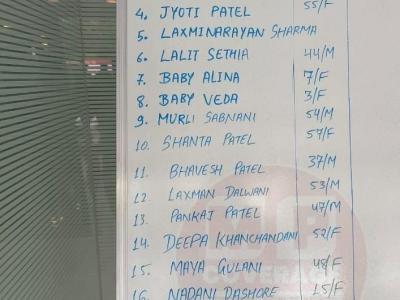 4. JYOTI PATEL 55/F
5. LAXMINARAYAN SHARMA
6. LALIT SETHIA 44/M
7. BABY ALINA 7/F
8. BABY VEDA 3/F
9. MURLI SABNANI 54/M
10. SHANTA PATEL 57/F
11. BHAVESH PATEL 37/M
12. LAXMAN DALWANI 53/M
13. PANKAJ PATEL 47/M
14. DEEPA KHANCHANDANI 52/F
15. MAYA GULANI 48/F
COVERAGE
16. NADANI DASHORE 15/F